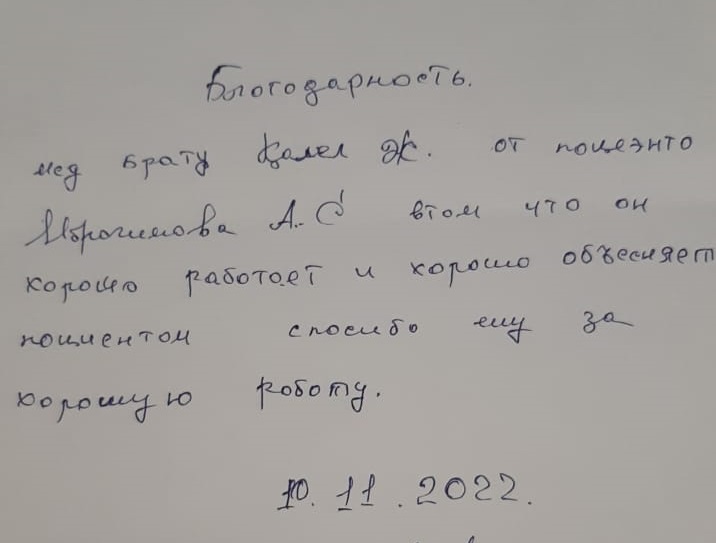 Благодарность.
мед брату Қалел Ж. от поцеэнто
Иброгимова А. С втом что он
хорошо работает и хорошо объесняет
поциентом спосибо ему за
хорошую роботу.
10.11.2022.